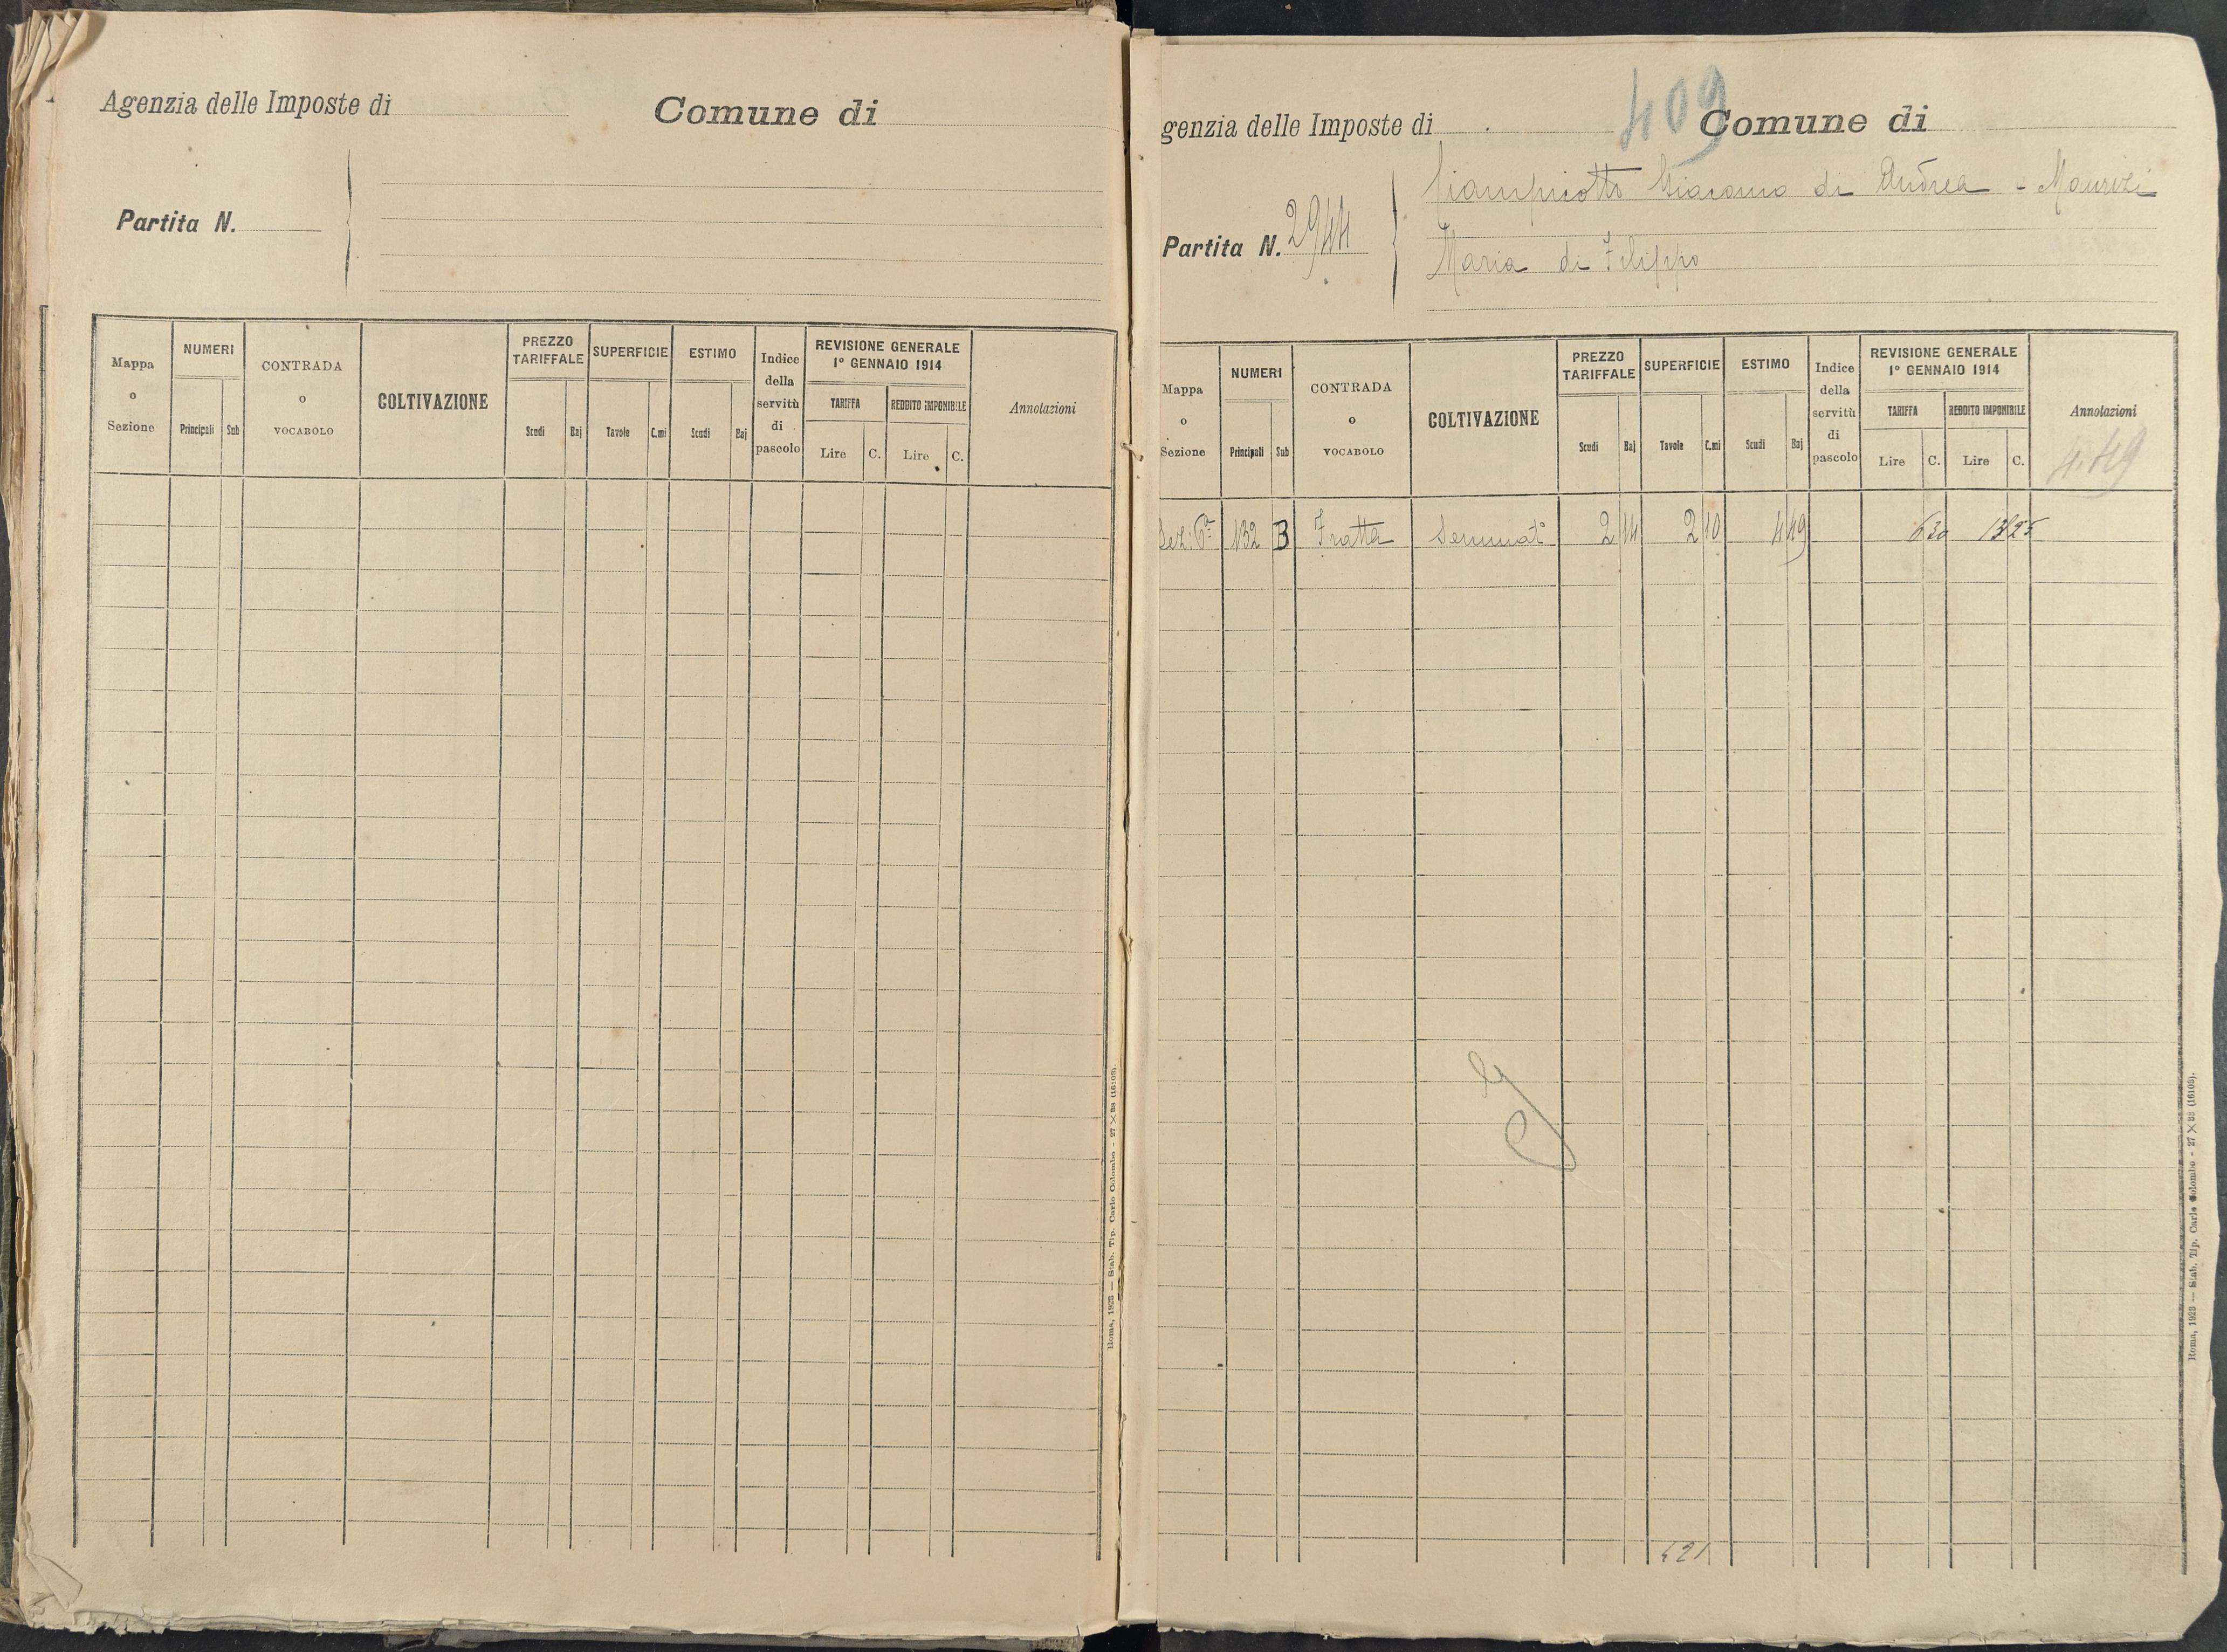 Agenzia delle Imposte di Comune di
Partita N.
Mappa o Sezione
NUMERI
Principali Sub
CONTRADA o VOCABOLO
COLTIVAZIONE
PREZZO TARIFFALE
Scudi Baj
SUPERFICIE
Tavole C.mi
ESTIMO
Scudi Baj
Indice della servitù di pascolo
REVISIONE GENERALE
1° GENNAIO 1914
TARIFFA
Lire C.
REDDITO IMPONIBILE
Lire C.
Annotazioni
Roma, 1923 — Stab. Tip. Carlo Colombo - 27 X 38 (16108).
409
genzia delle Imposte di Comune di
Giacomo di Andrea e Maurizi
Partita N. 2944
Maria di Filippo
Mappa o Sezione
NUMERI
Principali Sub
CONTRADA o VOCABOLO
COLTIVAZIONE
PREZZO TARIFFALE
Scudi Baj
SUPERFICIE
Tavole C.mi
ESTIMO
Scudi Baj
Indice della servitù di pascolo
REVISIONE GENERALE
1° GENNAIO 1914
TARIFFA
Lire C.
REDDITO IMPONIBILE
Lire C.
Annotazioni
4.49
Sez. 6ª 132 B Fratta Seminat° 2 14 2 10 4 49 6 30 13 25
Roma, 1923 — Stab. Tip. Carlo Colombo - 27 X 38 (16108).